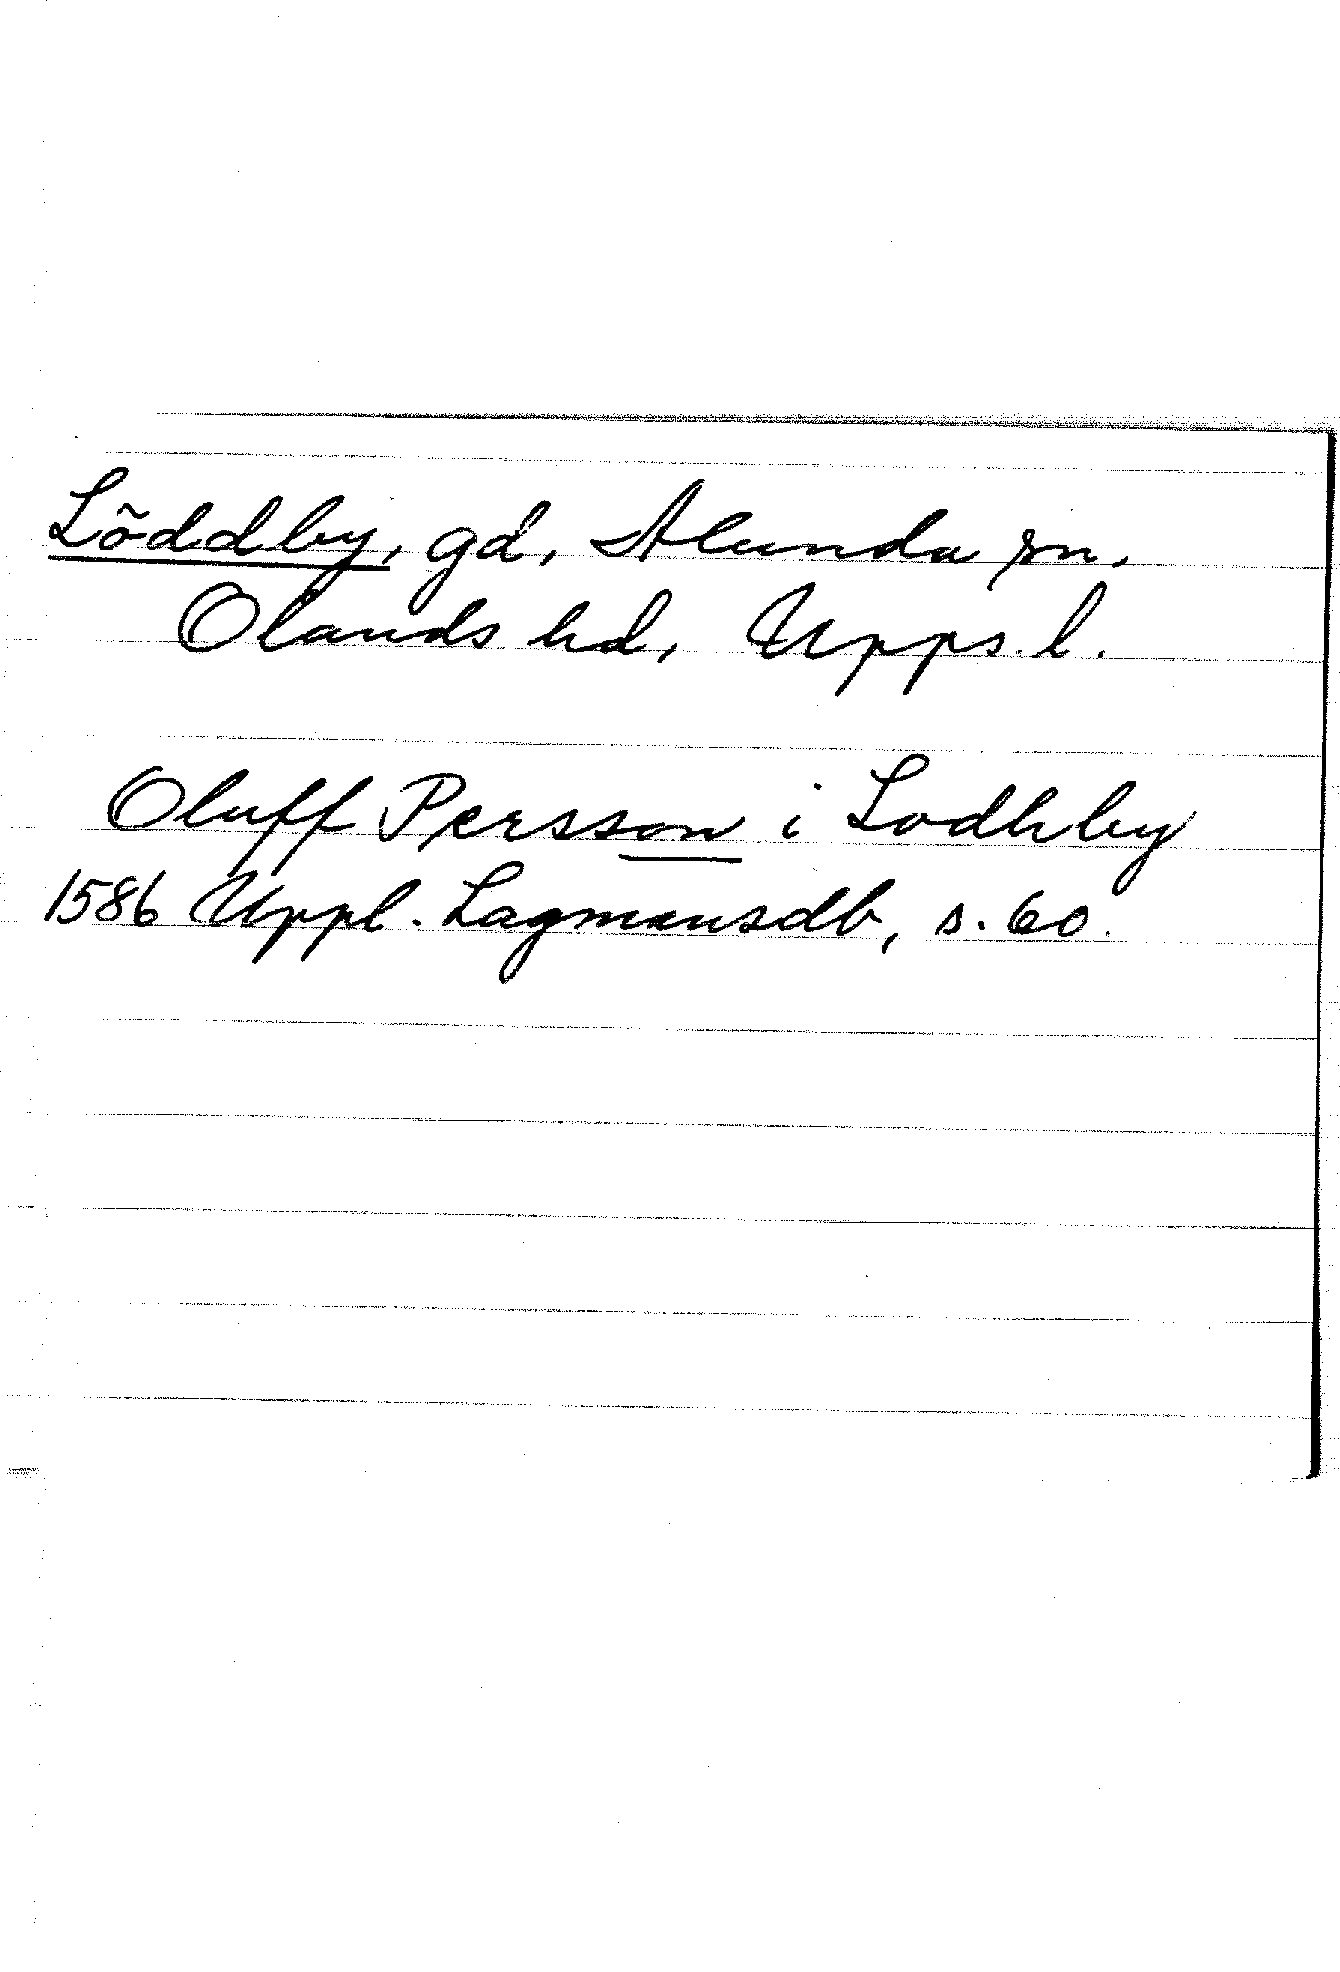 Löddby, gd, Alunda sn.
Olands hd, Upps. l.
Oluff Persson i Lodhby
1586 Uppl. Lagmansdb, s. 60.